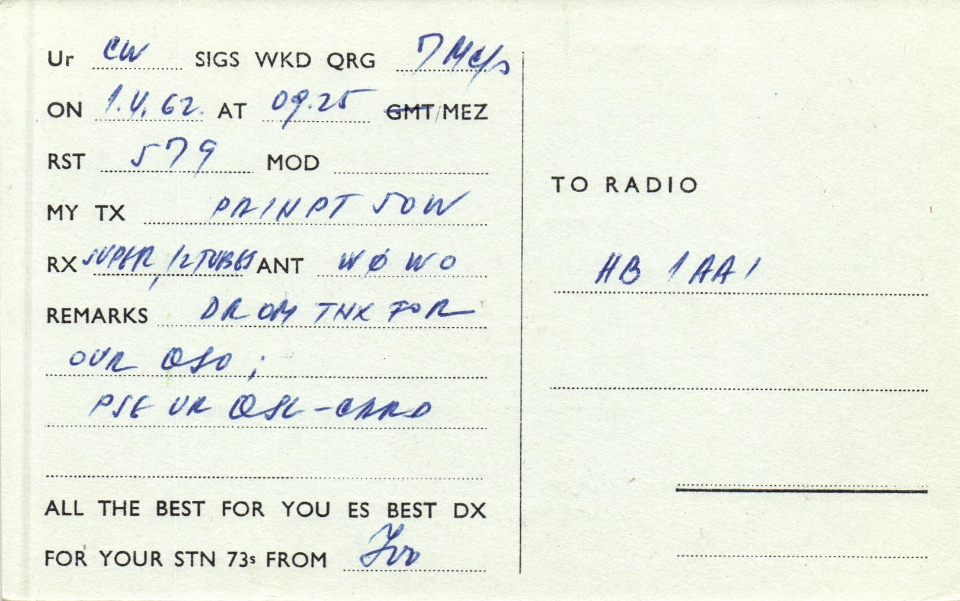 Ur CW SIGS WKD QRG 7 Mc/s
ON 1.V.62. AT 09.25 GMT/MEZ
RST 579 MOD
MY TX PA INPT 50W
RX SUPER, 12TUBES ANT WØWO
REMARKS DR OM TNX FOR
OUR QSO ;
PSE UR QSL-CARD
ALL THE BEST FOR YOU ES BEST DX
FOR YOUR STN 73s FROM
TO RADIO
HB 1AA1